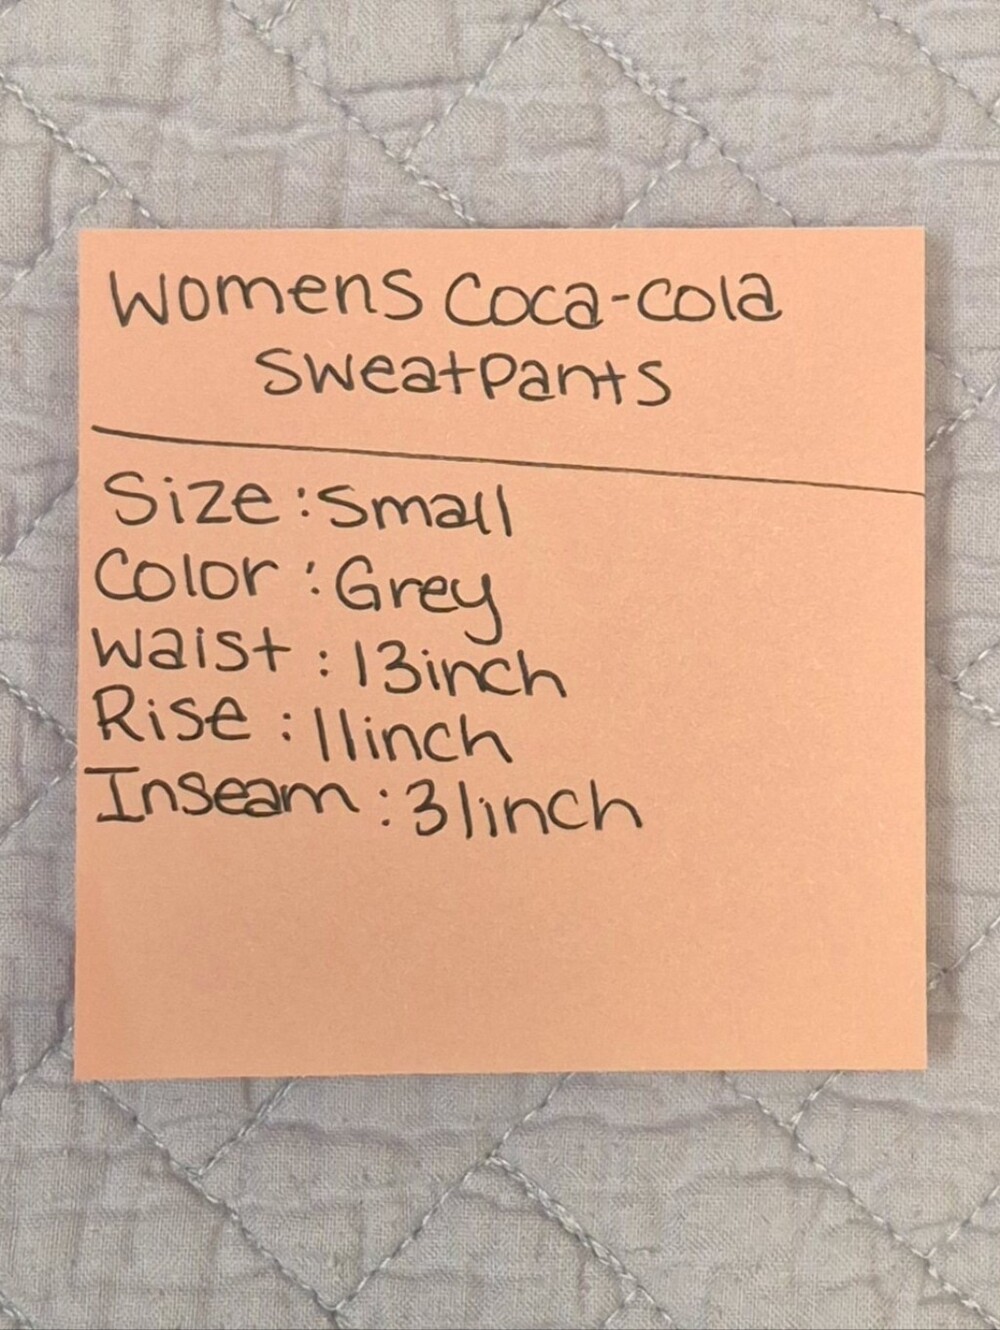 Womens Coca-Cola
Sweatpants
Size: Small
Color: Grey
Waist: 13inch
Rise: 11inch
Inseam: 31inch